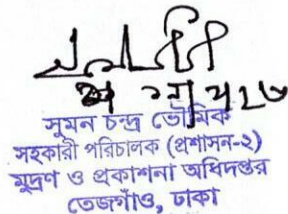 সুমন চন্দ্র ভৌমিক
সহকারী পরিচালক (প্রশাসন-২)
মুদ্রণ ও প্রকাশনা অধিদপ্তর
তেজগাঁও, ঢাকা